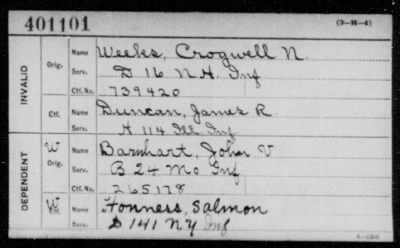 401101
(3-H-4)
INVALID
Orig.
Name Weeks, Crogwell N.
Serv. D 16 N.H. Inf
Ctf. No. 739420
Ctf.
Name Duncan, James R.
Serv. H 114 Ill Inf
DEPENDENT
W Orig.
Name Barnhart, John V
Serv. B 24 Mo Inf
Ctf. No. 265178
W
Name Fonners, Salmon
D 141 NY Inf